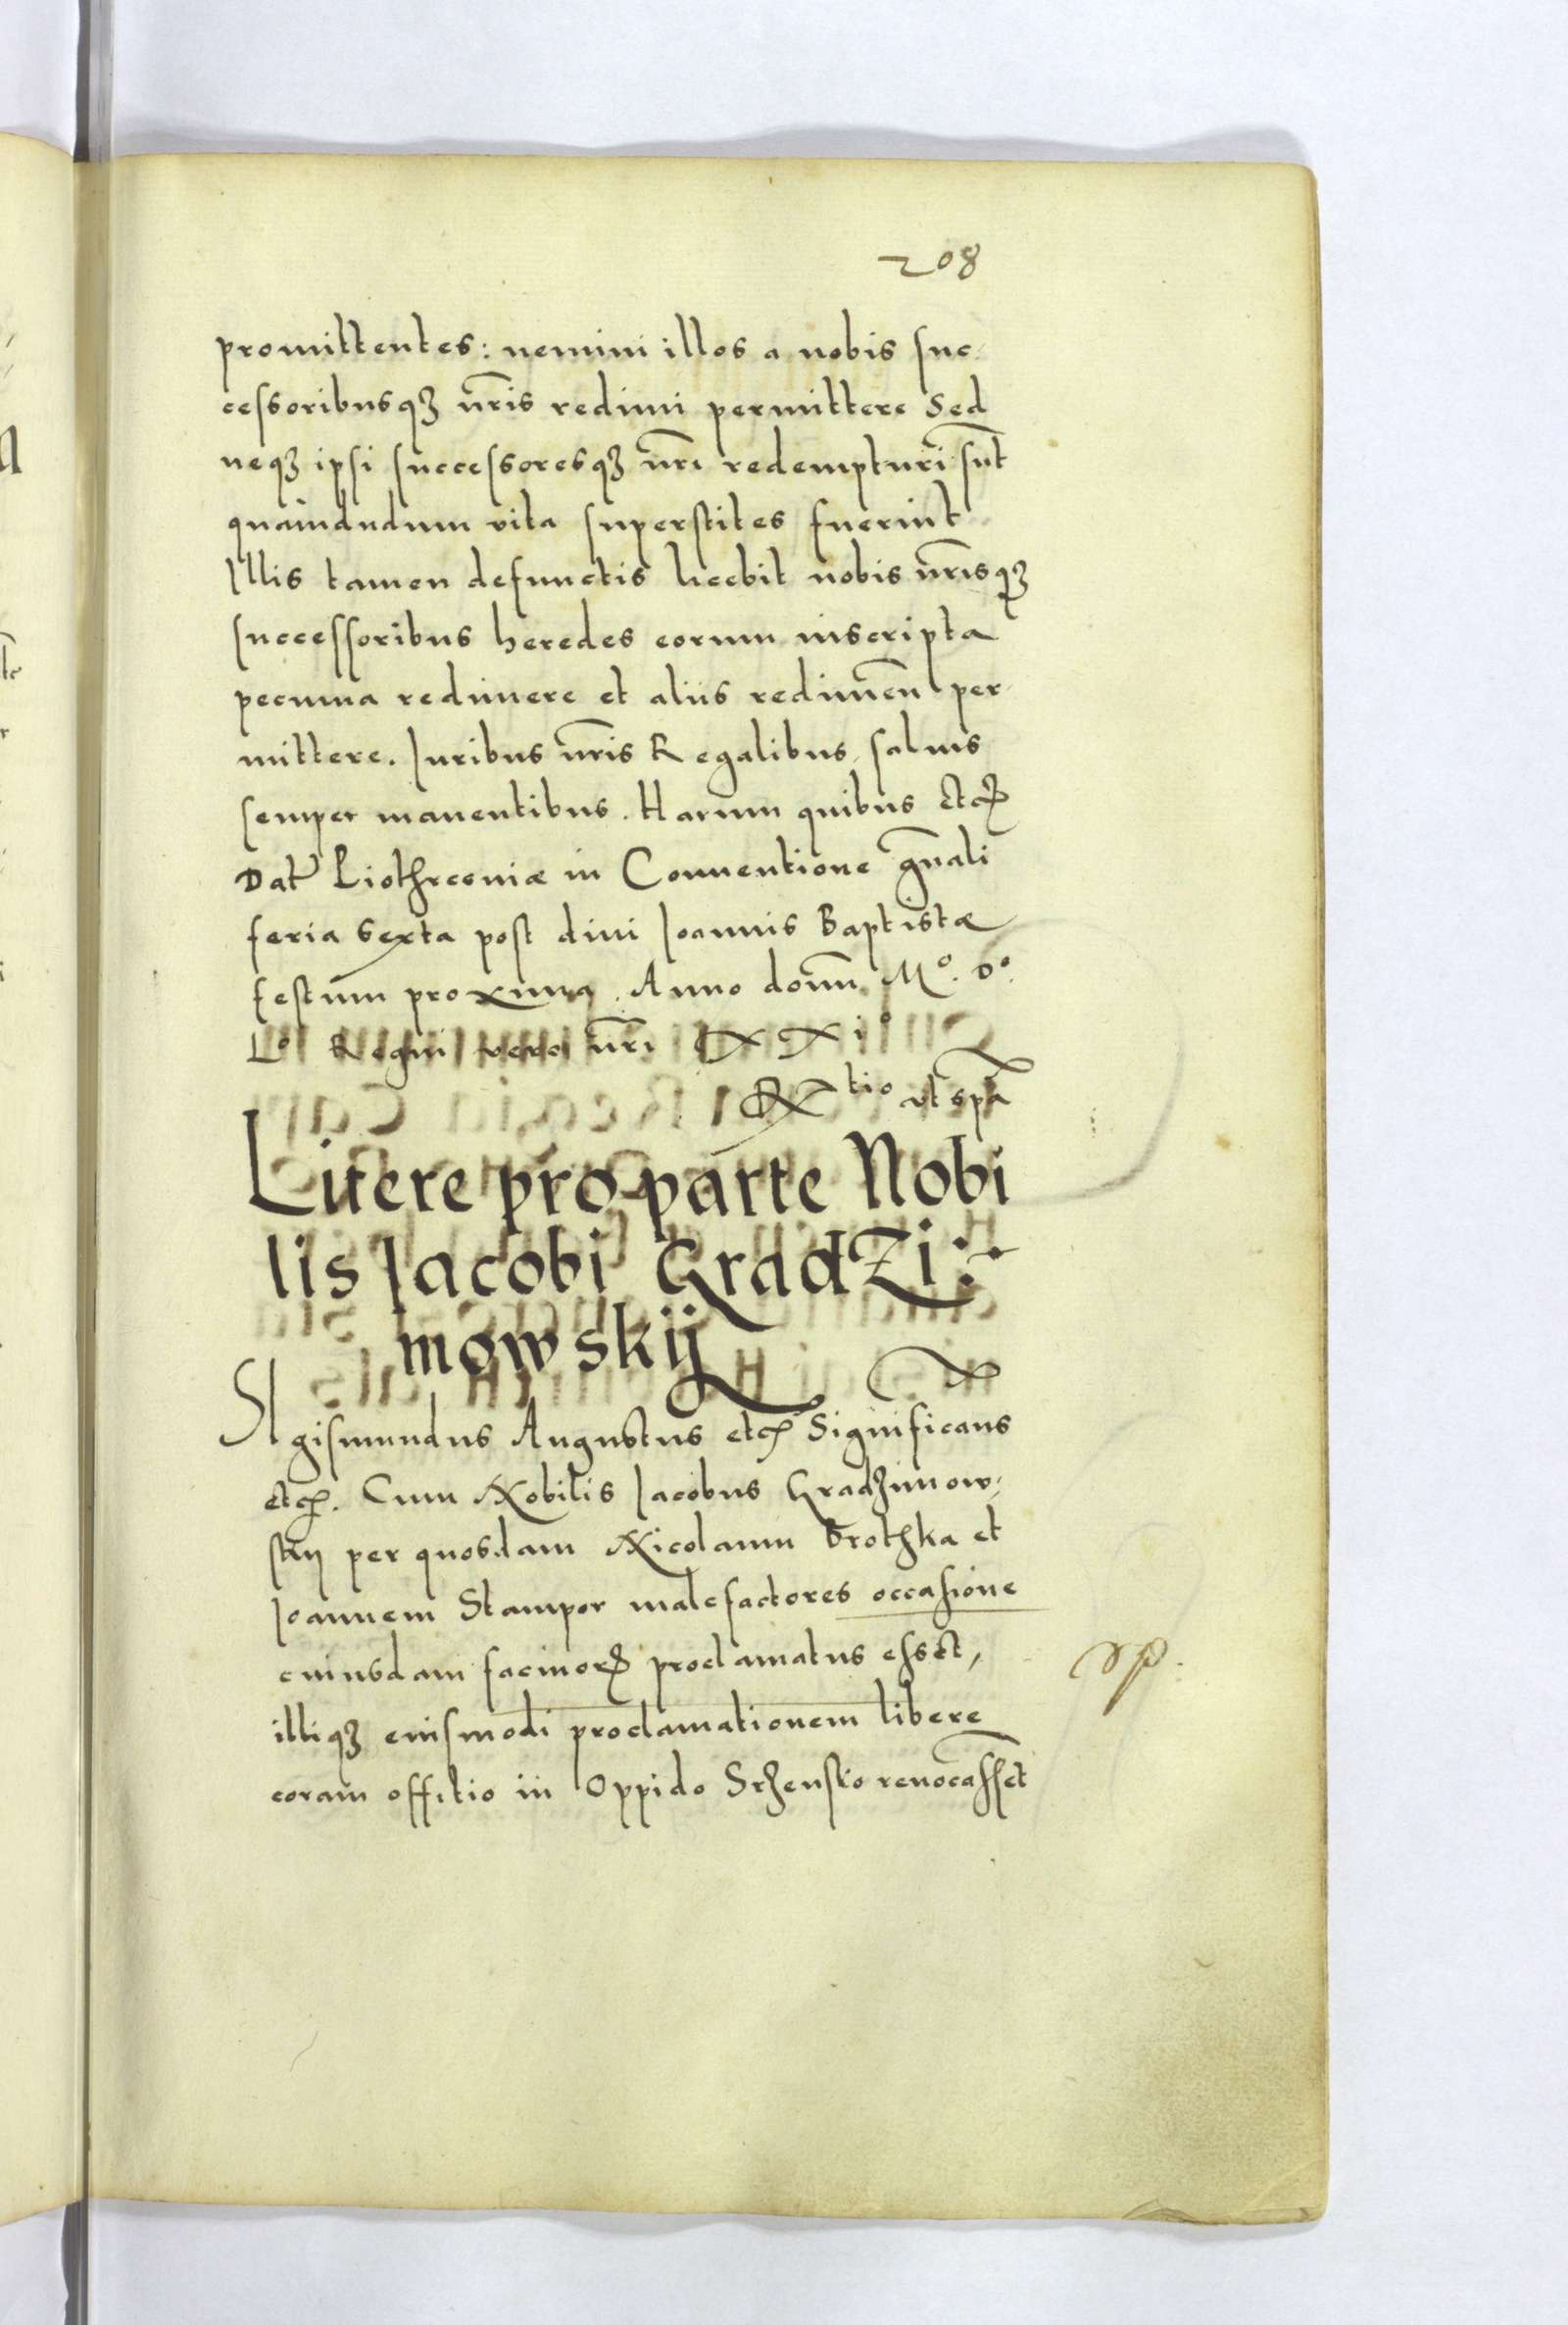 208
promittentes: nemini illos a nobis suc-
cessoribusqꝫ nr̃is redimi permittere Sed
neqꝫ ipsi successoresqꝫ nr̃i redempturi sũt
quamdudum vita superstites fuerint
Illis tamen defunctis licebit nobis nr̃isqꝫ
successoribus heredes eorum inscripta
pecunia redimere et aliis redimen̄ per-
mittere. Iuribus nr̃is Regalibus salvis
semper manentibus. Harum quibus etcꝭ
Dat̃ Piothrcoviæ in Conventione gñali
feria sexta post divi Ioannis Baptistæ
festum proxima. Anno domĩ Mº. Dº.
Lº Regni vero nr̃i XXiº
Rx tio ut sp̃a
Litere pro parte Nobi
lis Jacobi GradZi:-
mowskij
Sigismundus Augustus etcꝭ Significans
etcꝭ. Cum Nobilis Iacobus Gradzimow-
skij per quosdam Nicolaum Drothka et
Ioannem Stampor malefactores occasione
cuiusdam facinorꝭ proclamatus esset,
illiqꝫ eiusmodi proclamationem libere
coram offitio in Oppido Srzensko revocassẽt